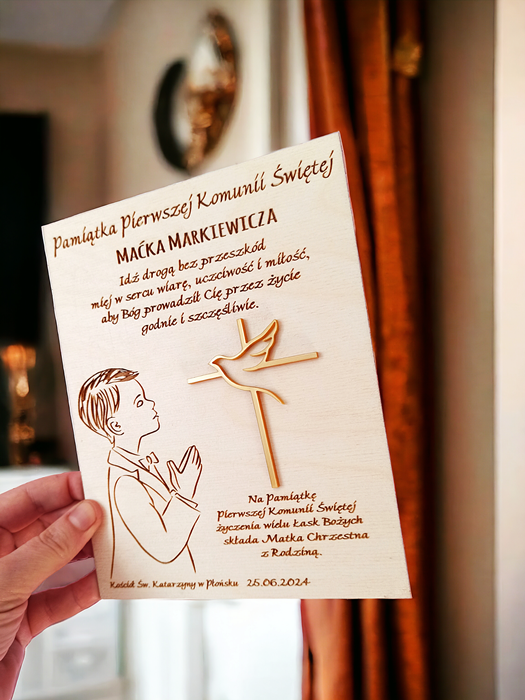 Pamiątka Pierwszej Komunii Świętej
Maćka Markiewicza
Idź drogą bez przeszkód
miej w sercu wiarę, uczciwość i miłość,
aby Bóg prowadził Cię przez życie
godnie i szczęśliwie.
Na Pamiątkę
Pierwszej Komunii Świętej
życzenia wielu Łask Bożych
składa Matka Chrzestna
z Rodziną.
Kościół Św. Katarzyny w Płońsku 25.06.2024